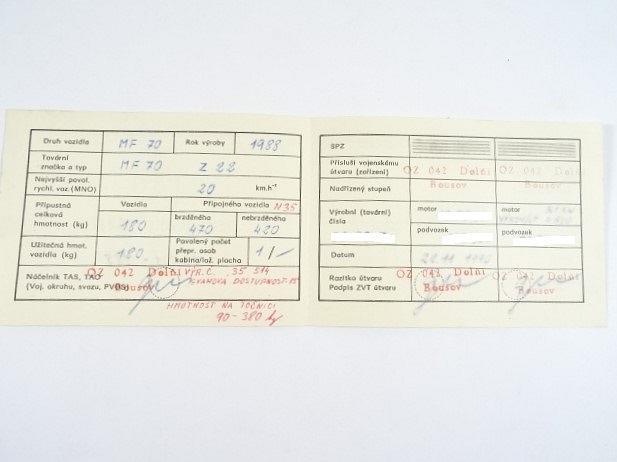 Druh vozidla MF 70 Rok výroby 1988
Tovární
značka a typ MF 70 Z 22
Nejvyšší povol.
rychl. voz. (MNO) 20 km.h⁻¹
Přípustná
celková
hmotnost (kg)
Vozidla Přípojného vozidla N35
brzděného nebrzděného
180 470 420
Užitečná hmot.
vozidla (kg) 180
Povolený počet
přepr. osob
kabina/lož. plocha 1/–
Náčelník TAS, TAO
(Voj. okruhu, svazu, PVOS)
OZ 042 Dolní
Bousov
VÝR. Č. 35 514
DOSTUPNOST
HMOTNOST NA TOČNICI
90-380 kg
SPZ
Přísluší vojenskému
útvaru (zařízení)
Nadřízený stupeň
OZ 042 Dolní OZ 042 Dolní
Bousov Bousov
Výrobní (tovární)
čísla
motor motor
podvozek podvozek
Datum
Razítko útvaru
Podpis ZVT útvaru
OZ 042 Dolní OZ 042 Dolní
Bousov Bousov